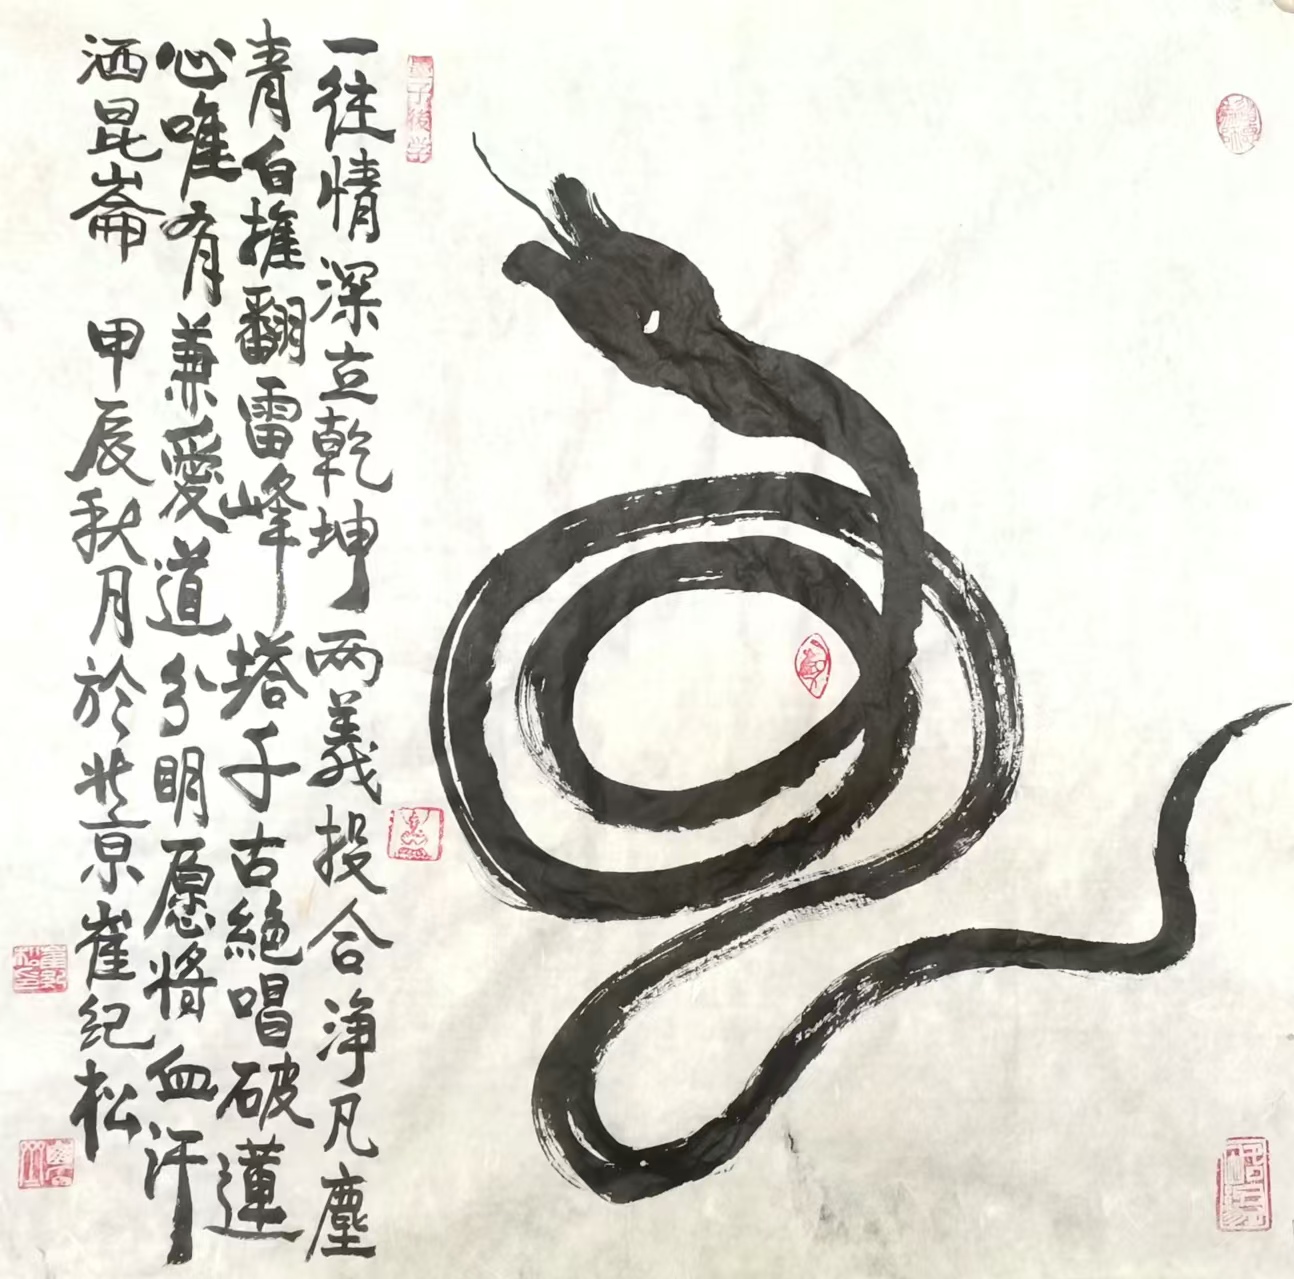 一往情深立乾坤两义投合净凡塵
青白摧翻雷峰塔千古絶唱破蓮
心唯有兼愛道分明愿將血汗
洒昆崙 甲辰秋月於北京崔纪松